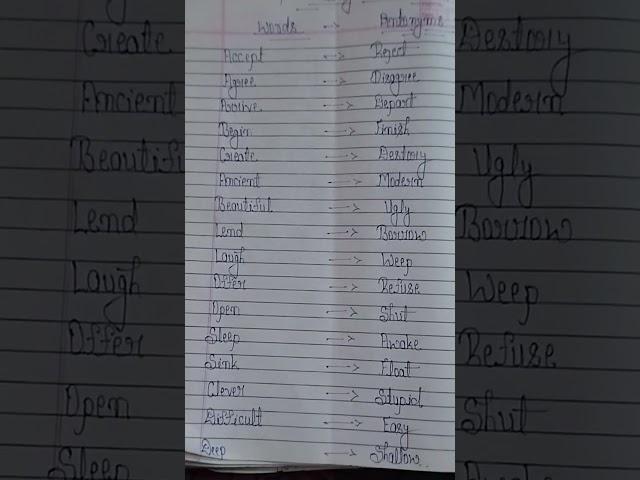 Words -> Antonyms
Accept -> Reject
Agree -> Disagree
Arrive -> Depart
Begin -> Finish
Create -> Destroy
Ancient -> Modern
Beautiful -> Ugly
Lend -> Borrow
Laugh -> Weep
Offer -> Refuse
Open -> Shut
Sleep -> Awake
Sink -> Float
Clever -> Stupid
Difficult -> Easy
Deep -> Shallow